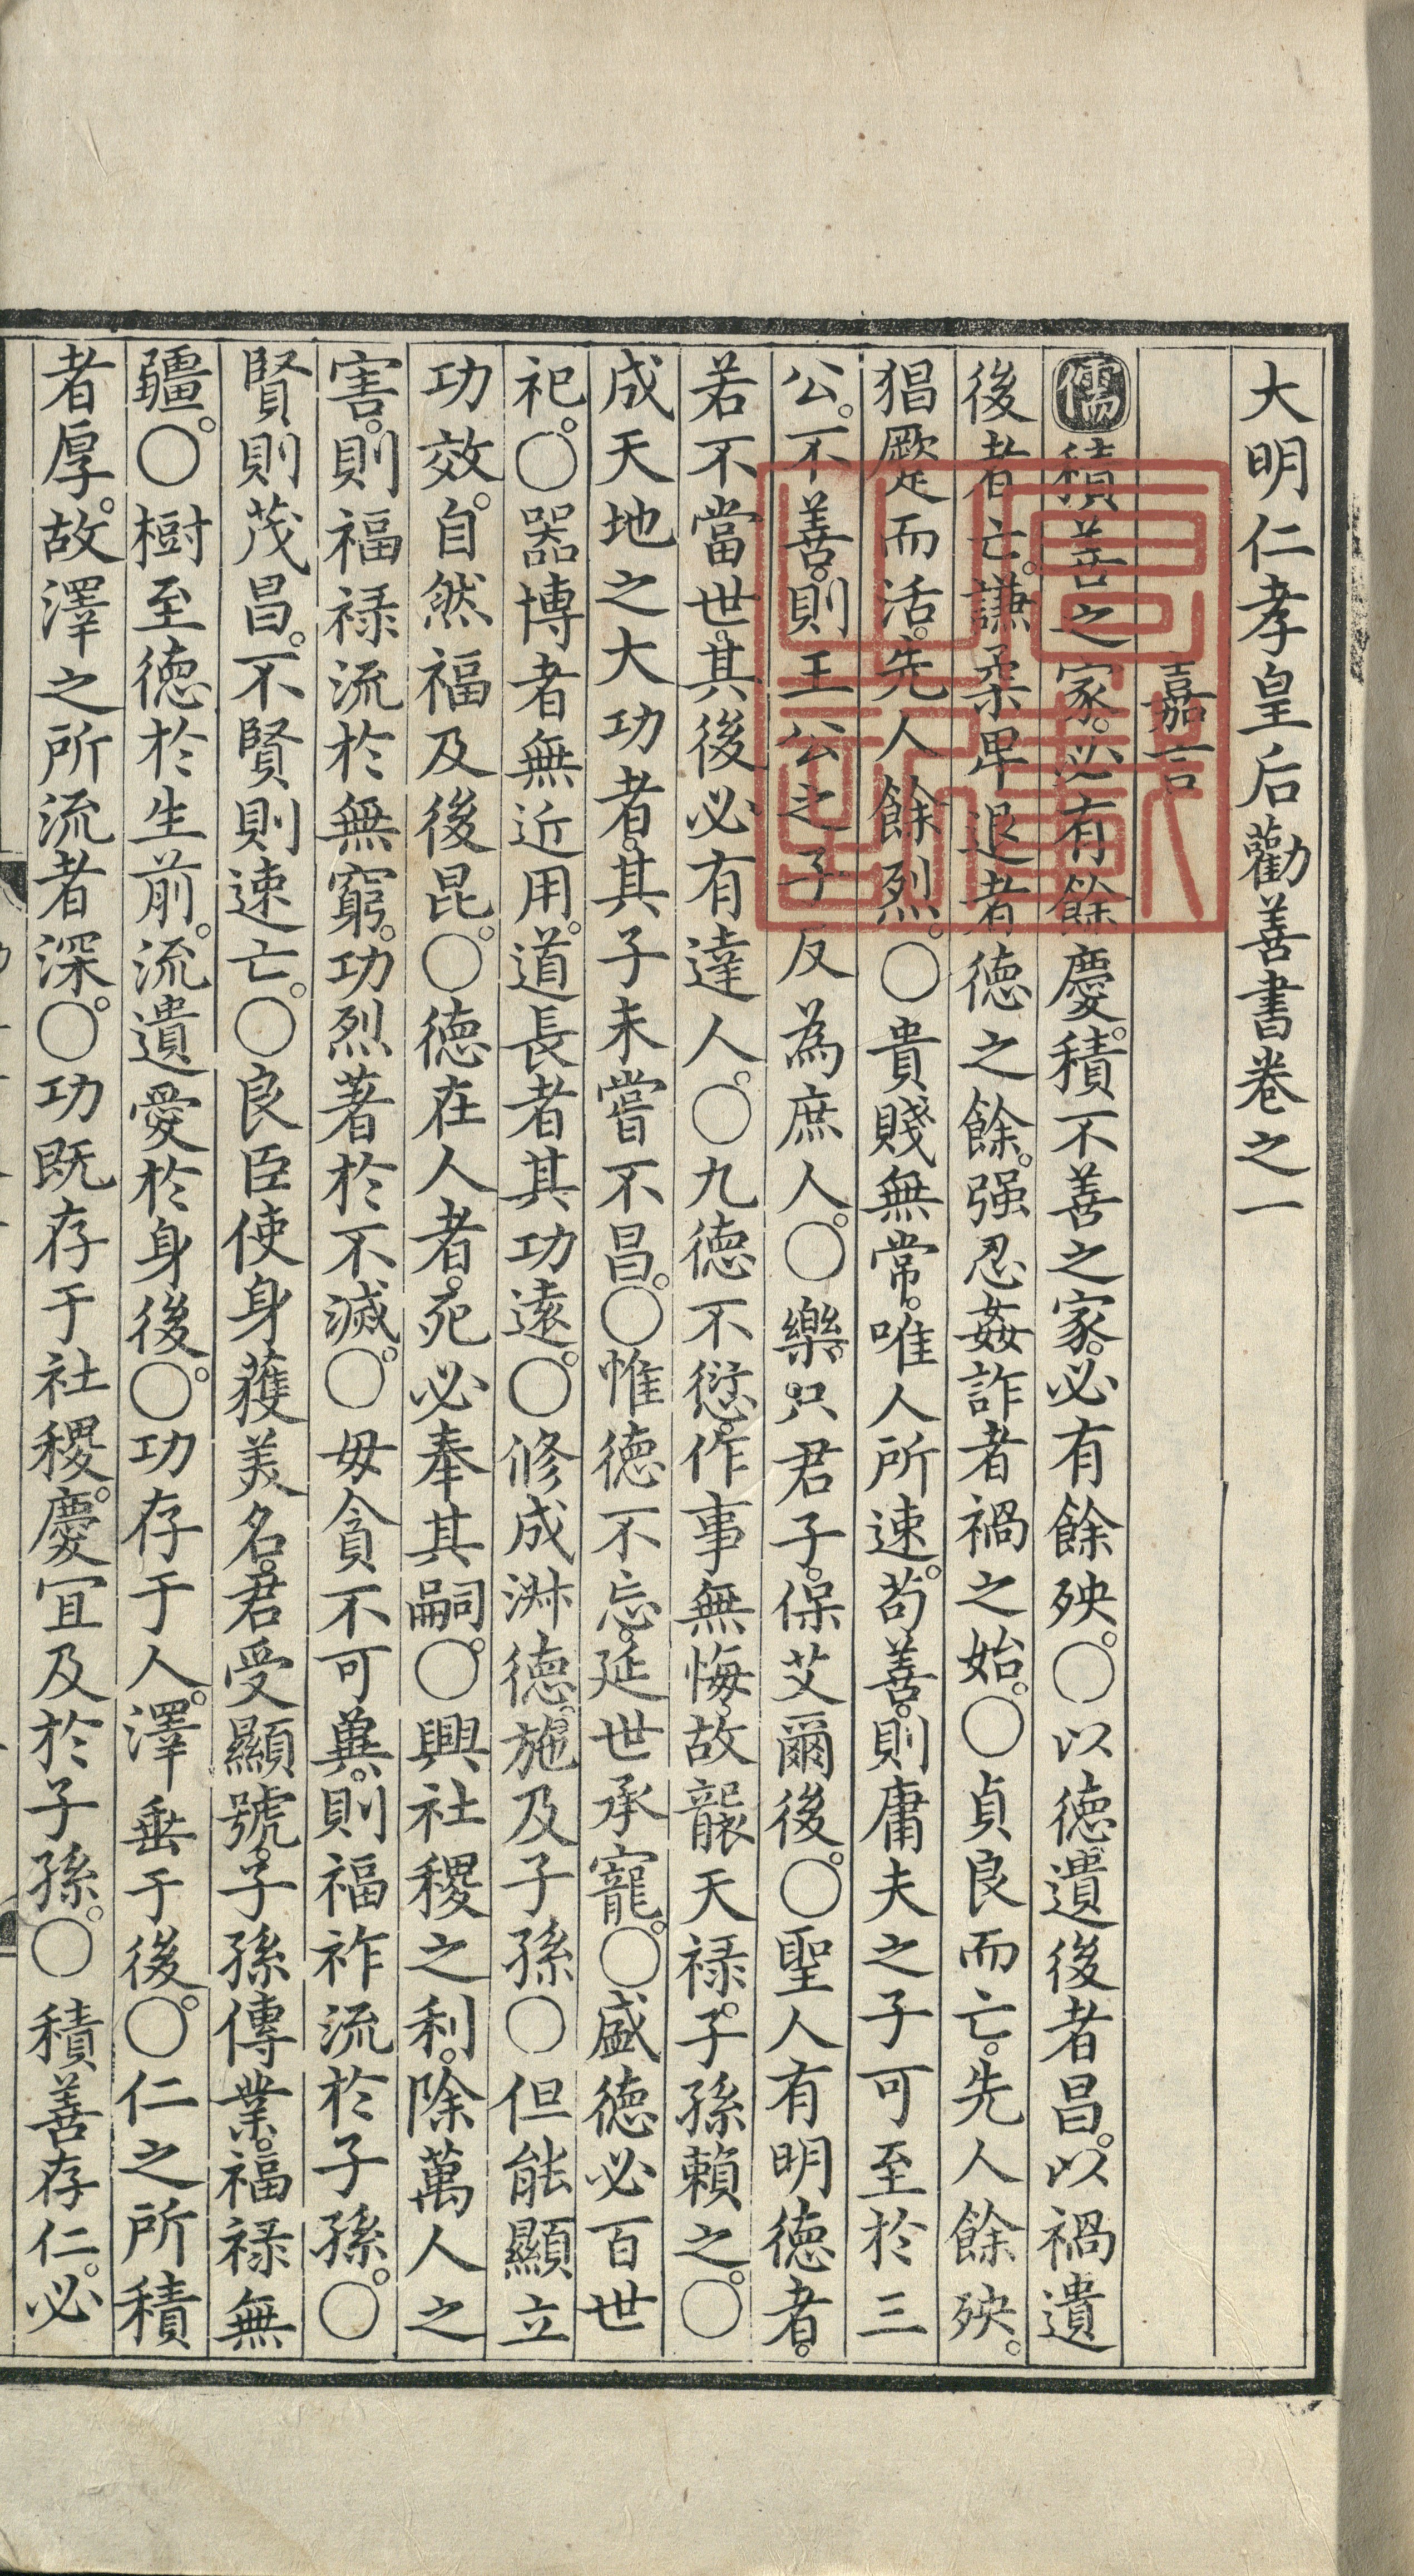 大明仁孝皇后勸善書卷之一
嘉言
儒積善之家。必有餘慶。積不善之家。必有餘殃。○以德遺後者昌。以禍遺
後者亡。謙柔卑退者德之餘。强忍姦詐者禍之始。○貞良而亡。先人餘殃。
猖蹶而活。先人餘烈。○貴賤無常。唯人所速。苟善。則庸夫之子可至於三
公。不善。則王公之子反為庶人。○樂。只君子。保艾爾後。○聖人有明德者。
若不當世。其後必有達人。○九德不愆。作事無悔。故襲天禄。子孫賴之。○
成天地之大功者。其子未嘗不昌。○惟德不忘。延世承寵。○盛德必百世
祀。○器博者無近用。道長者其功遠。○修成淋德。施及子孫○但能顯立
功效。自然福及後昆。○德在人者。死必奉其嗣。○興社稷之利。除萬人之
害。則福禄流於無窮。功烈著於不滅。○毋貪不可兾。則福祚流於子孫。○
賢則茂昌。不賢則速亡。○良臣使身獲美名。君受顯號。子孫傳業。福禄無
疆。○樹至德於生前。流遺愛於身後。○功存于人。澤垂于後。○仁之所積
者厚。故澤之所流者深。○功既存于社稷。慶宜及於子孫。○積善存仁。必